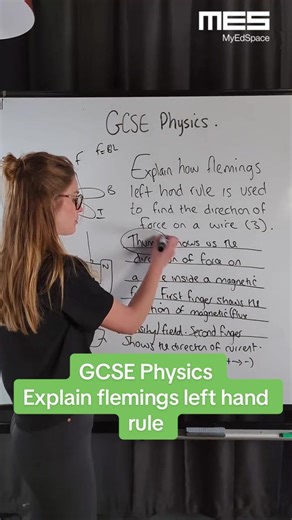 MES
MyEdSpace
GCSE Physics.
f f=BL
B
I
N
Explain how flemings
left hand rule is used
to find the direction of
force on a wire (3).
shows us the
direction of force on
a inside a magnetic
First finger shows the
of magnetic (flux
field. Second finger
Shows the direction of current.
GCSE Physics
Explain flemings left hand
rule